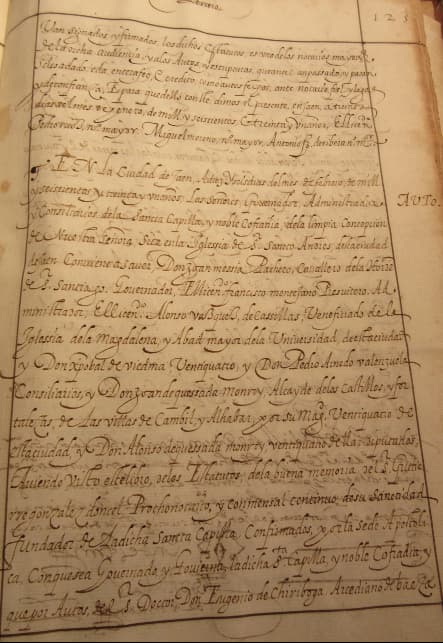 125
Van signados, y firmados, los dichos Estatutos, es vno de los notarios mayores
de la dicha audiencia, y a los Autos, y escripturas, que ante el an pasado, y pasan
se les a dado, e da, entera fe, E credito, como autos fechos, ante notario fiel, y legal
y de confiança, E para que de ello conste, dimos el presente, en Jaen, a
dias del mes de de mill, y seiscientos, E treinta y vn años, El licen.do
Pedro nº mayor. Miguel moreno, nº mayor, Antonio de ribera nº mor.
EN la Ciudad de Jaen, A diez Y seis dias del mes, de febrero, de mill
y seiscientos, y treinta y vn años, Los Señores, Governador, Administrador
y Consiliarios, de la Sancta Capilla, y noble Cofradia, de la limpia Concepcion
AUTO.
de Nuestra Señora, Sita en la Iglesia de S.r Sancto Andres, de la ciudad
de Jaen Conviene a Saver, Don Juan messia Pacheco, Cavallero de la Orden
de S.r Sanctiago. Governador, El licen.do francisco montesano Presvitero, Ad
ministrador, El licen.do Alonso vazquez, de Casellas, Veneficiado de la
Iglessia de la Magdalena, y Abad mayor de la Universidad, desta ciudad
y Don Xpobal de viedma Ventiquatro, y Don Pedro Arnido valenzuela
Consiliarios, y Don Juan de quessada Monroy, Alcayde de los Castillos, y for
talezas, de Las villas de Cambil y Alhabar, por su Mag. Ventiquatro de
esta ciudad, y Don Alonso de quessada monroy ventiquatro de ella diputados,
Auiendo visto el libro, de los Estatutos, de la buena memoria, del S.r Gutie
rre gonzalez doncel Prothonotario, y commensal continuo, de su Sanctidad
fundador de la dicha Sancta Capilla, Confirmados, por la Sede Apostoli
ca, Con que se a governado, y govierna, la dicha S.ta Capilla, y noble Cofradia, y
que por Autos, de el S.r Doctor, Don Eugenio de Chiriboga Arcediano de baeza